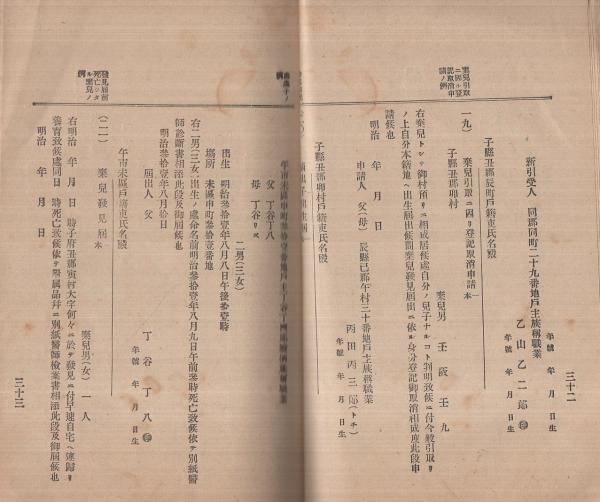 三十二
新引受人　同郡同町二十九番地戶主族稱職業
乙山乙二郞㊞
年號　年　月　日生
子縣丑郡辰町戶籍吏氏名殿
棄兒引取ニ因ル登記取消申請ノ例
(一九)　棄兒引取ニ因リ登記取消申請　本一
子縣丑郡卯村
棄兒男　壬辰壬九
右棄兒トシテ御村預リニ相成居候處自分ノ兒子ナルコト判明致候ニ付今般引取リ
ノ上自分本籍地ヘ出生屆出候間棄兒發見屆出ニ依ル身分登記御取消相成度此段申
請候也
明治　年　月　日
申請人　父(母)　辰縣巳郡午村三十番地戶主族稱職業
丙田丙三郞(トチ)
年號　年　月　日生
子縣丑郡卯村戶籍吏氏名殿
父　丁谷丁八
母　丁谷リヱ
二男(三女)
出生　明治參拾壹年八月八日午後拾壹時
場所　未區申町參拾壹番地
右二男(三女)出生ノ處命名前明治參拾壹年八月九日午前參時死亡致候依テ別紙醫
師診斷書相添此段及御屆候也
明治參拾壹年八月拾日
屆出人　父　丁谷丁八㊞
年號　年　月　日生
午市未區戶籍吏氏名殿
發見屆前死亡シタル棄兒ノ例
(二一)　棄兒發見屆　本一
棄兒男(女)　一人
右明治　年　月　日　時子府丑郡寅村大字何々ニ於テ發見ニ付早速自宅ヘ連歸リ
養育致候處同日　時死亡致候依テ附屬品幷ニ別紙醫師檢案書相添此段及御屆候也
明治　年　月　日
三十三